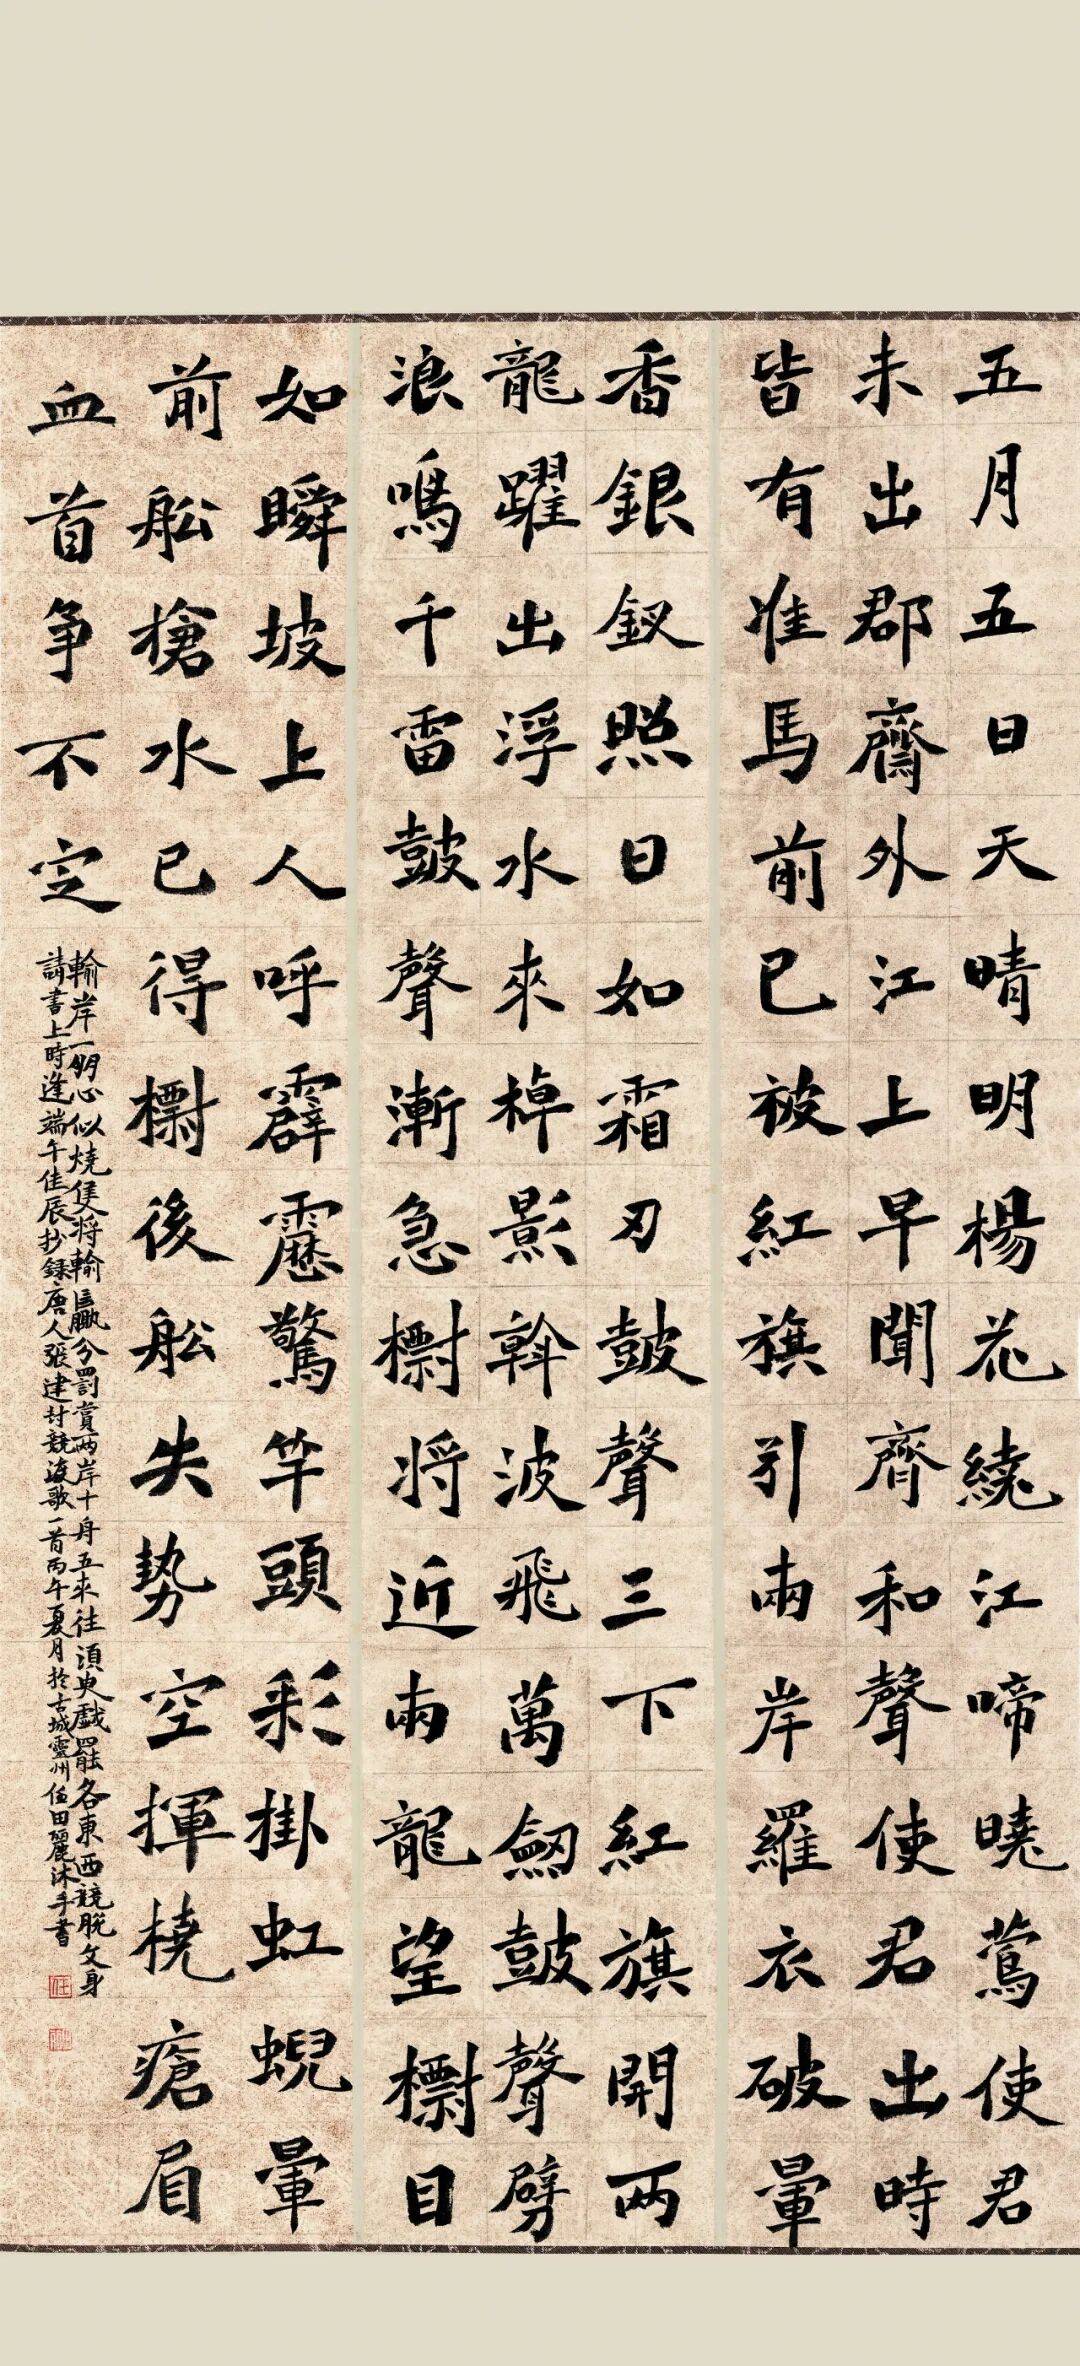 五月五日天晴明楊花繞江啼曉鶯使君
未出郡齋外江上早聞齊和聲使君出時
皆有准馬前已被紅旗引兩岸羅衣破暈
香銀釵照日如霜刃鼓聲三下紅旗開两
龍躍出浮水來棹影斡波飛萬劒鼓聲劈
浪鳴千雷鼓聲漸急標將近兩龍望標目
如瞬坡上人呼霹靂驚竿頭彩掛虹蜺暈
前船搶水已得標後船失勢空揮橈瘡眉
血首争不定
輸岸一朋心似燒隻將輸贏分罰賞两岸十舟五來往須臾戲罷各東西競脱文身
請書上時逢端午佳辰抄録唐人張建封競渡歌一首丙午夏月於古城靈州任田麗沐手書